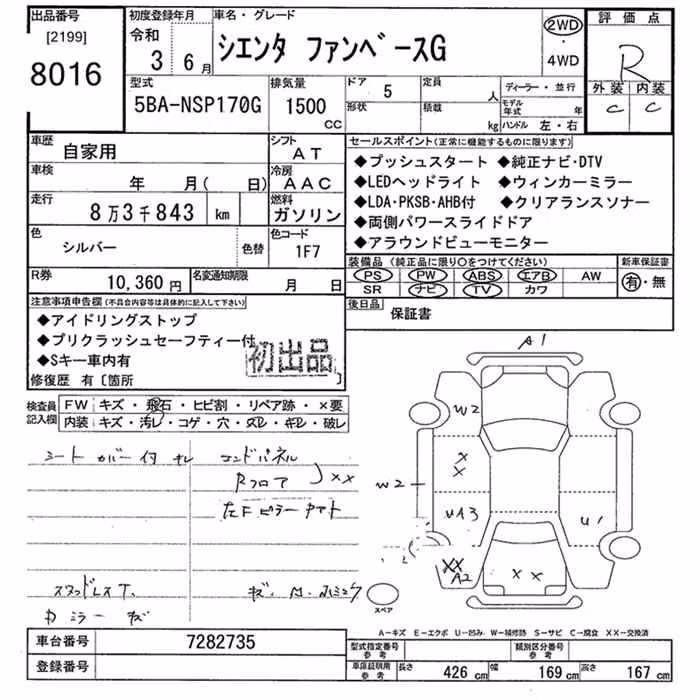 出品番号
[2199]
8016
初度登録年月
令和
3 6月
車名・グレード
シエンタ ファンベースG
2WD
・
4WD
評価点
R
外装 内装
C C
型式
5BA-NSP170G
排気量
1500
CC
ドア 5
定員 人
形状
積載 kg
ディーラー・並行
モデル年式 年
ハンドル 左・右
車歴 自家用
シフト AT
車検 年 月( 日)
冷房 AAC
走行 8万3千843 km
燃料 ガソリン
色 シルバー 色替
色コード 1F7
R券 10,360円
名変通知期限 月 日
セールスポイント(正常に機能するものに限ります)
◆プッシュスタート ◆純正ナビ・DTV
◆LEDヘッドライト ◆ウィンカーミラー
◆LDA・PKSB・AHB付 ◆クリアランスソナー
◆両側パワースライドドア
◆アラウンドビューモニター
装備品(純正品に限り〇をつけてください)
PS PW ABS エアB AW
SR ナビ TV カワ
新車保証書
有・無
後日品 保証書
注意事項申告欄(不具合内容等は具体的に記入して下さい)
◆アイドリングストップ
◆プリクラッシュセーフティー付
◆Sキー車内有
初出品
修復歴 有〔箇所 〕
検査員記入欄
FW キズ・飛石・ヒビ割・リペア跡・×要
内装 キズ・汚レ・コゲ・穴・スレ・キレ・破レ
シートカバー付 キレ
コンドパネル
Rフロア
XX
左Fピラー
スタッドレスT.
ミラー キズ
A1
W2
X
X
W2
UA3
U1
XX
A2
X X
スペア
A-キズ E-エクボ U-凹み W-補修跡 S-サビ C-腐食 XX-交換済
車台番号 7282735
登録番号
型式指定番号
参考
類別区分番号
参考
車庫証明用
参考
長さ 426 cm 幅 169 cm 高さ 167 cm